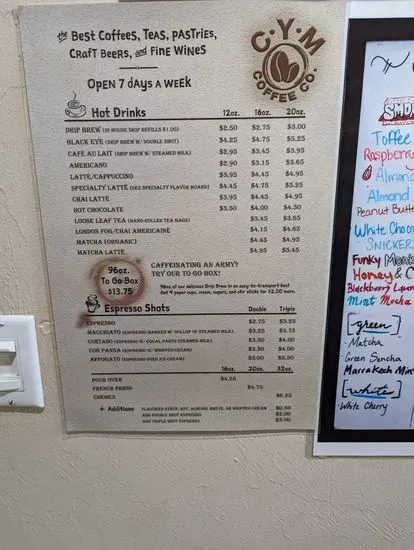 the Best Coffees, Teas, Pastries,
Craft Beers, and Fine Wines
Open 7 days a week
C.Y.M
COFFEE CO.
Hot Drinks 12oz. 16oz. 20oz.
DRIP BREW (IN-HOUSE DRIP REFILLS $1.00) $2.50 $2.75 $3.00
BLACK EYE (DRIP BREW W/ DOUBLE SHOT) $4.25 $4.75 $5.25
CAFÉ AU LAIT (DRIP BREW W/ STEAMED MILK) $2.95 $3.45 $3.95
AMERICANO $2.90 $3.15 $3.65
LATTE/CAPPUCCINO $3.95 $4.45 $4.95
SPECIALTY LATTÉ (SEE SPECIALTY FLAVOR BOARD) $4.45 $4.75 $5.25
CHAI LATTÉ $3.95 $4.45 $4.95
HOT CHOCOLATE $3.50 $4.00 $4.50
LOOSE LEAF TEA (HAND-ROLLED TEA BAGS) $3.45 $3.65
LONDON FOG/CHAI AMERICAINE $4.15 $4.65
MATCHA (ORGANIC) $4.45 $4.95
MATCHA LATTÉ $5.45
96oz.
To Go Box
$13.75
CAFFEINATING AN ARMY?
TRY OUR TO GO BOX!
96oz of our delicious Drip Brew in an easy-to-transport box!
Get 9 paper cups, cream, sugars, and stir sticks for $2.00 more.
Espresso Shots Double Triple
ESPRESSO $2.75 $3.25
MACCHIATO (ESPRESSO MARKED W/ DOLLOP OF STEAMED MILK) $3.25 $3.75
CORTADO (ESPRESSO W/ EQUAL PARTS STEAMED MILK) $3.50 $4.00
CON PANNA (ESPRESSO W/ WHIPPED CREAM) $3.50 $4.00
AFFOGATO (ESPRESSO OVER ICE CREAM) $5.00 $5.50
16oz. 20oz. 32oz.
POUR OVER $4.25
FRENCH PRESS $4.75
CHEMEX $6.25
+ Additions FLAVORED SYRUP, SOY, ALMOND, BREVE, OR WHIPPED CREAM $0.50
ADD DOUBLE SHOT ESPRESSO $2.00
ADD TRIPLE SHOT ESPRESSO $3.00
Toffee
Raspberry
Almond
Almond
Peanut Butte
White Choco
SNICKERS
Funky Monk
Honey & C
Blackberry
Mint Mocha
[green]
Matcha
Green Sencha
Marrakech Min
[white]
White Cherry